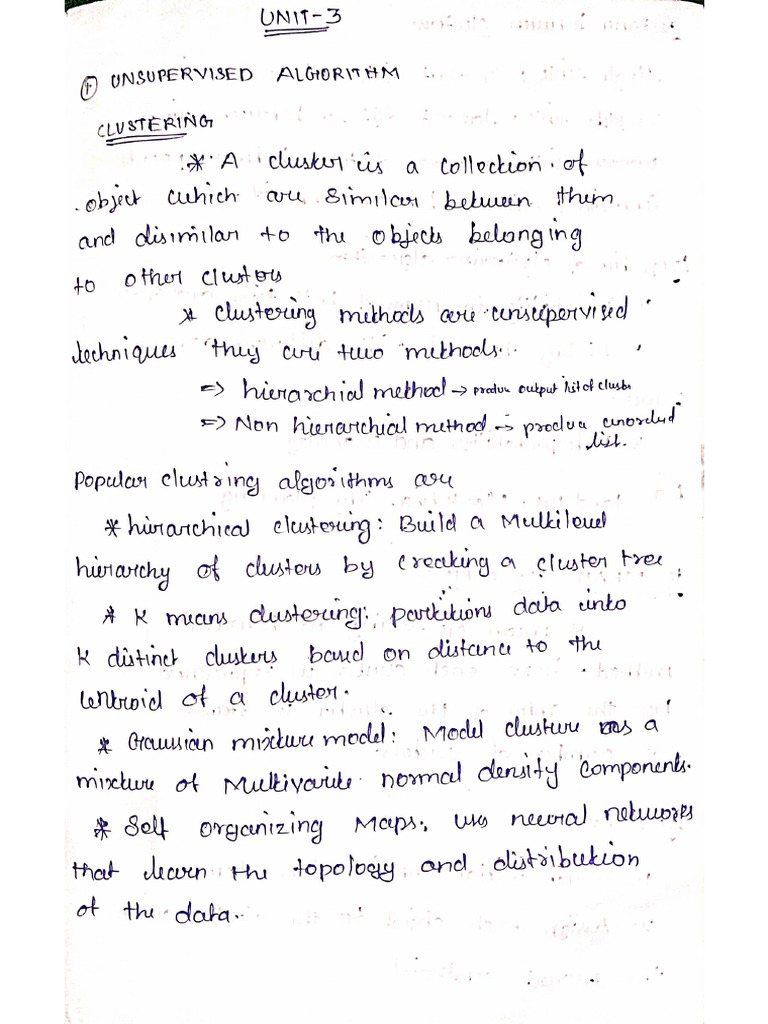 UNIT-3
① UNSUPERVISED ALGIORITHM
CLUSTERING
* A cluster is a collection of
object which are similar between them
and disimilar to the objects belonging
to other clustors
* clustering methods are unsupervised
techniques they are two methods.
=> hierarchial method → produe output list of cluster
=> Non hierarchial method → produe unorded
list.
Popular clustring algorithms are
* hierarchical clustering: Build a Multilevel
hierarchy of clusters by creating a cluster tree
* K means clustering: partitions data into
K distinct clusters based on distance to the
centroid of a cluster.
* Graussian mixture model: Model clusture as a
mixture of Multivarite normal density components.
* Self organizing Maps: uses neural networks
that learn the topology and distribution
of the data.